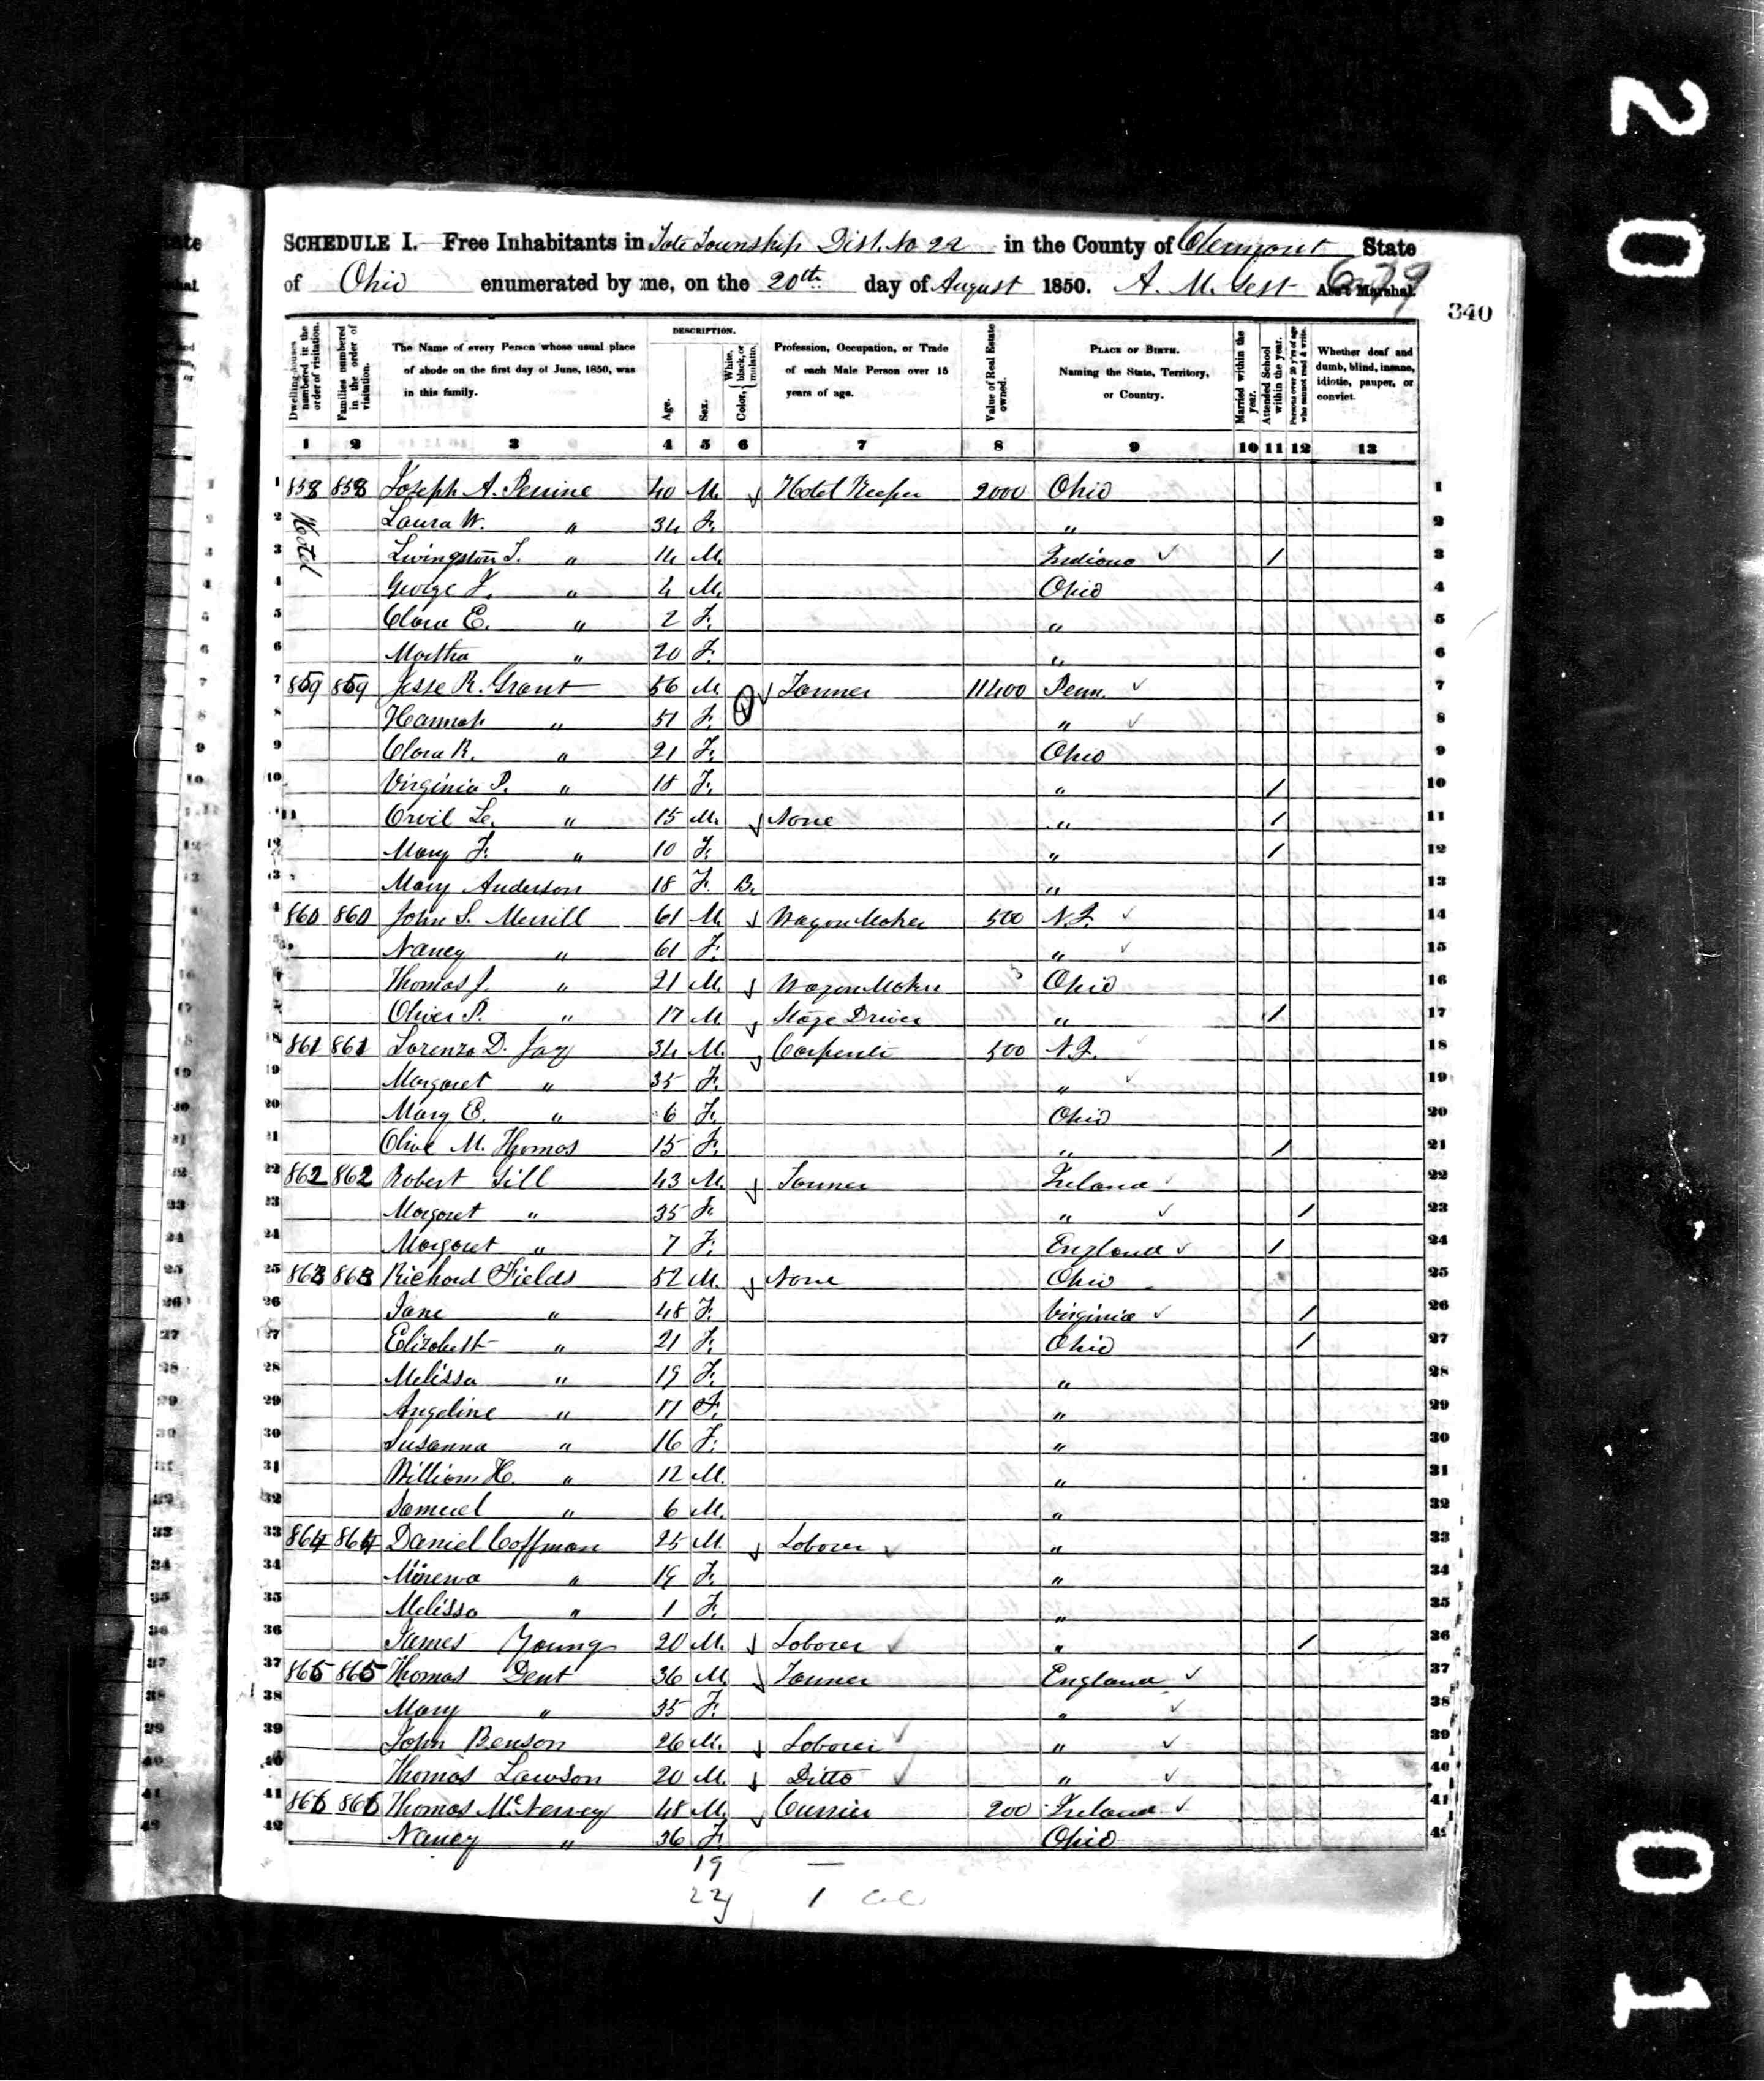 SCHEDULE I. Free Inhabitants in Tate Township Dist. No 22 in the County of Clermont State
of Ohio enumerated by me, on the 20th day of August 1850. A. M. Gest Ass't Marshal.
679
340
Dwelling-houses numbered in the order of visitation.
Families numbered in the order of visitation.
The Name of every Person whose usual place of abode on the first day of June, 1850, was in this family.
DESCRIPTION.
Age.
Sex.
Color, White, black, or mulatto.
Profession, Occupation, or Trade of each Male Person over 15 years of age.
Value of Real Estate owned.
PLACE OF BIRTH. Naming the State, Territory, or Country.
Married within the year.
Attended School within the year.
Persons over 20 y'rs of age who cannot read & write.
Whether deaf and dumb, blind, insane, idiotic, pauper, or convict.
1 2 3 4 5 6 7 8 9 10 11 12 13
1 858 858 Joseph A. Perrine 40 M. Hotel Keeper 2000 Ohio 1
Hotel
2 Laura W. " 34 F. " 2
3 Livingston T. " 14 M. Indiana / 3
4 George F. " 4 M. Ohio 4
5 Clara E. " 2 F. " 5
6 Martha " 20 F. " 6
7 859 859 Jesse R. Grant 56 M. Tanner 11400 Penn. 7
8 Hannah " 51 F. " 8
9 Clara R. " 21 F. Ohio 9
10 Virginia P. " 18 F. " / 10
11 Orvil L. " 15 M. None " / 11
12 Mary F. " 10 F. " / 12
13 Mary Anderson 18 F. B. " 13
14 860 860 John S. Merrill 61 M. Wagon Maker 500 N.J. 14
15 Nancy " 61 F. " 15
16 Thomas J. " 21 M. Wagon Maker Ohio 16
17 Oliver P. " 17 M. Stage Driver " / 17
18 861 861 Lorenzo D. Jay 34 M. Carpenter 500 N.J. 18
19 Margaret " 35 F. " 19
20 Mary E. " 6 F. Ohio 20
21 Olive M. Thomas 15 F. " / 21
22 862 862 Robert Gill 43 M. Tanner Ireland 22
23 Margaret " 35 F. " / 23
24 Margaret " 7 F. England / 24
25 863 863 Richard Fields 52 M. None Ohio 25
26 Jane " 48 F. Virginia / 26
27 Elizabeth " 21 F. Ohio / 27
28 Melissa " 19 F. " 28
29 Angeline " 17 F. " 29
30 Susanna " 16 F. " 30
31 William H. " 12 M. " 31
32 Samuel " 6 M. " 32
33 864 864 Daniel Coffman 25 M. Laborer " 33
34 Minerva " 19 F. " 34
35 Melissa " 1 F. " 35
36 James Young 20 M. Laborer " / 36
37 865 865 Thomas Dent 36 M. Tanner England 37
38 Mary " 35 F. " 38
39 John Benson 26 M. Laborer " 39
40 Thomas Lawson 20 M. Ditto " 40
41 866 866 Thomas McNervey 48 M. Currier 200 Ireland 41
42 Nancy " 36 F. Ohio 42
19 —
23 1
20
01